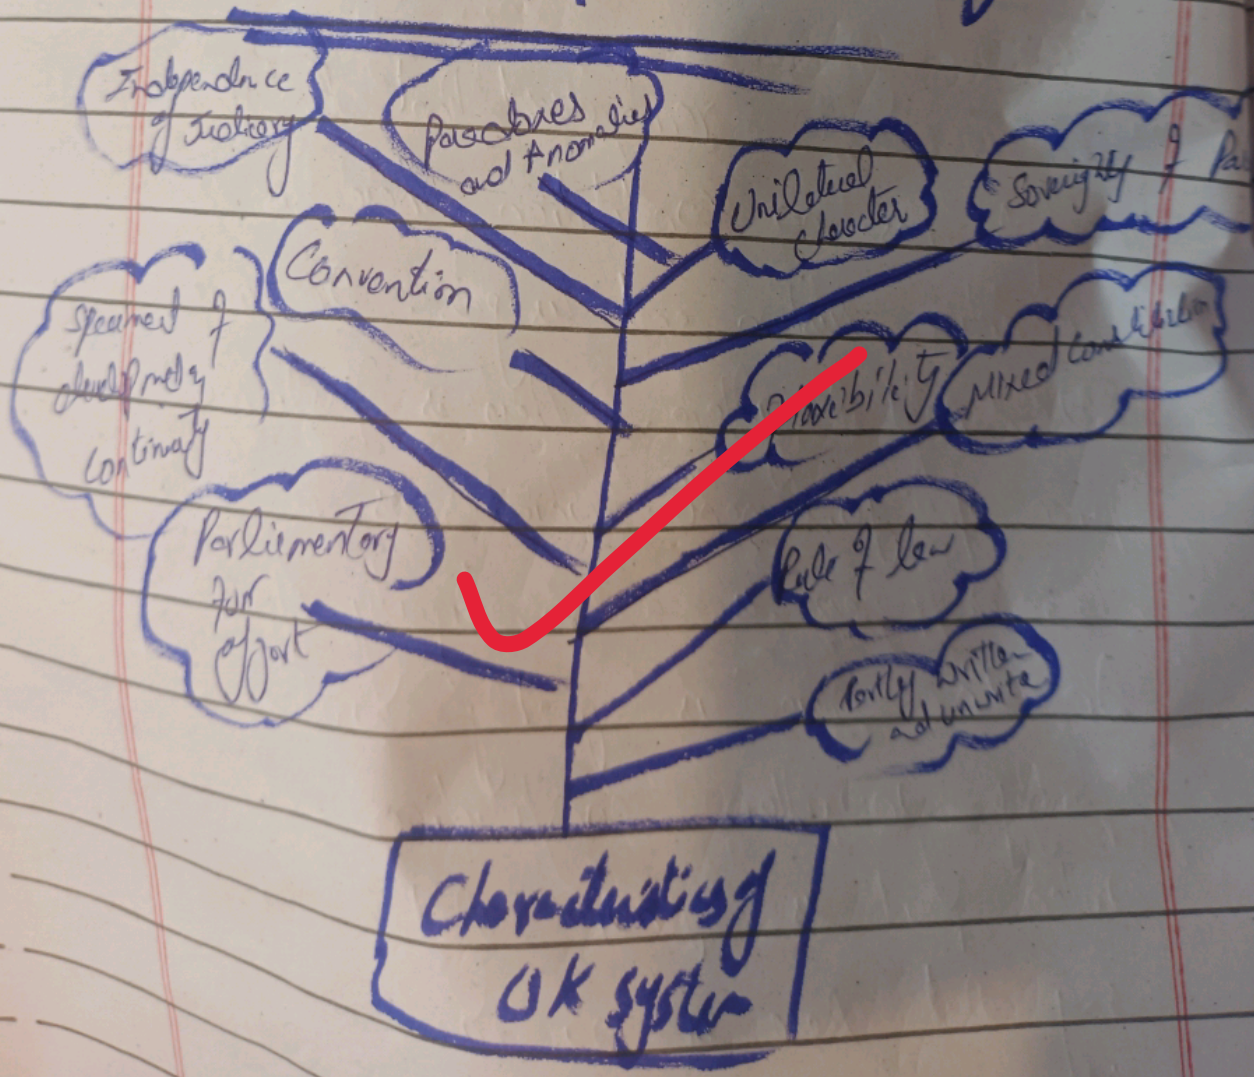 Independence
of Judicary
Paradoxes
and Anomalies
Unilateral
character
Soverighty of Pa
Convention
Specimed of
developmetry
continuaty
Flaxcibility
Mixed constitution
Parliementory
for
effort
Rule of law
Partly written
ad unwrite
Characteristics of
UK system